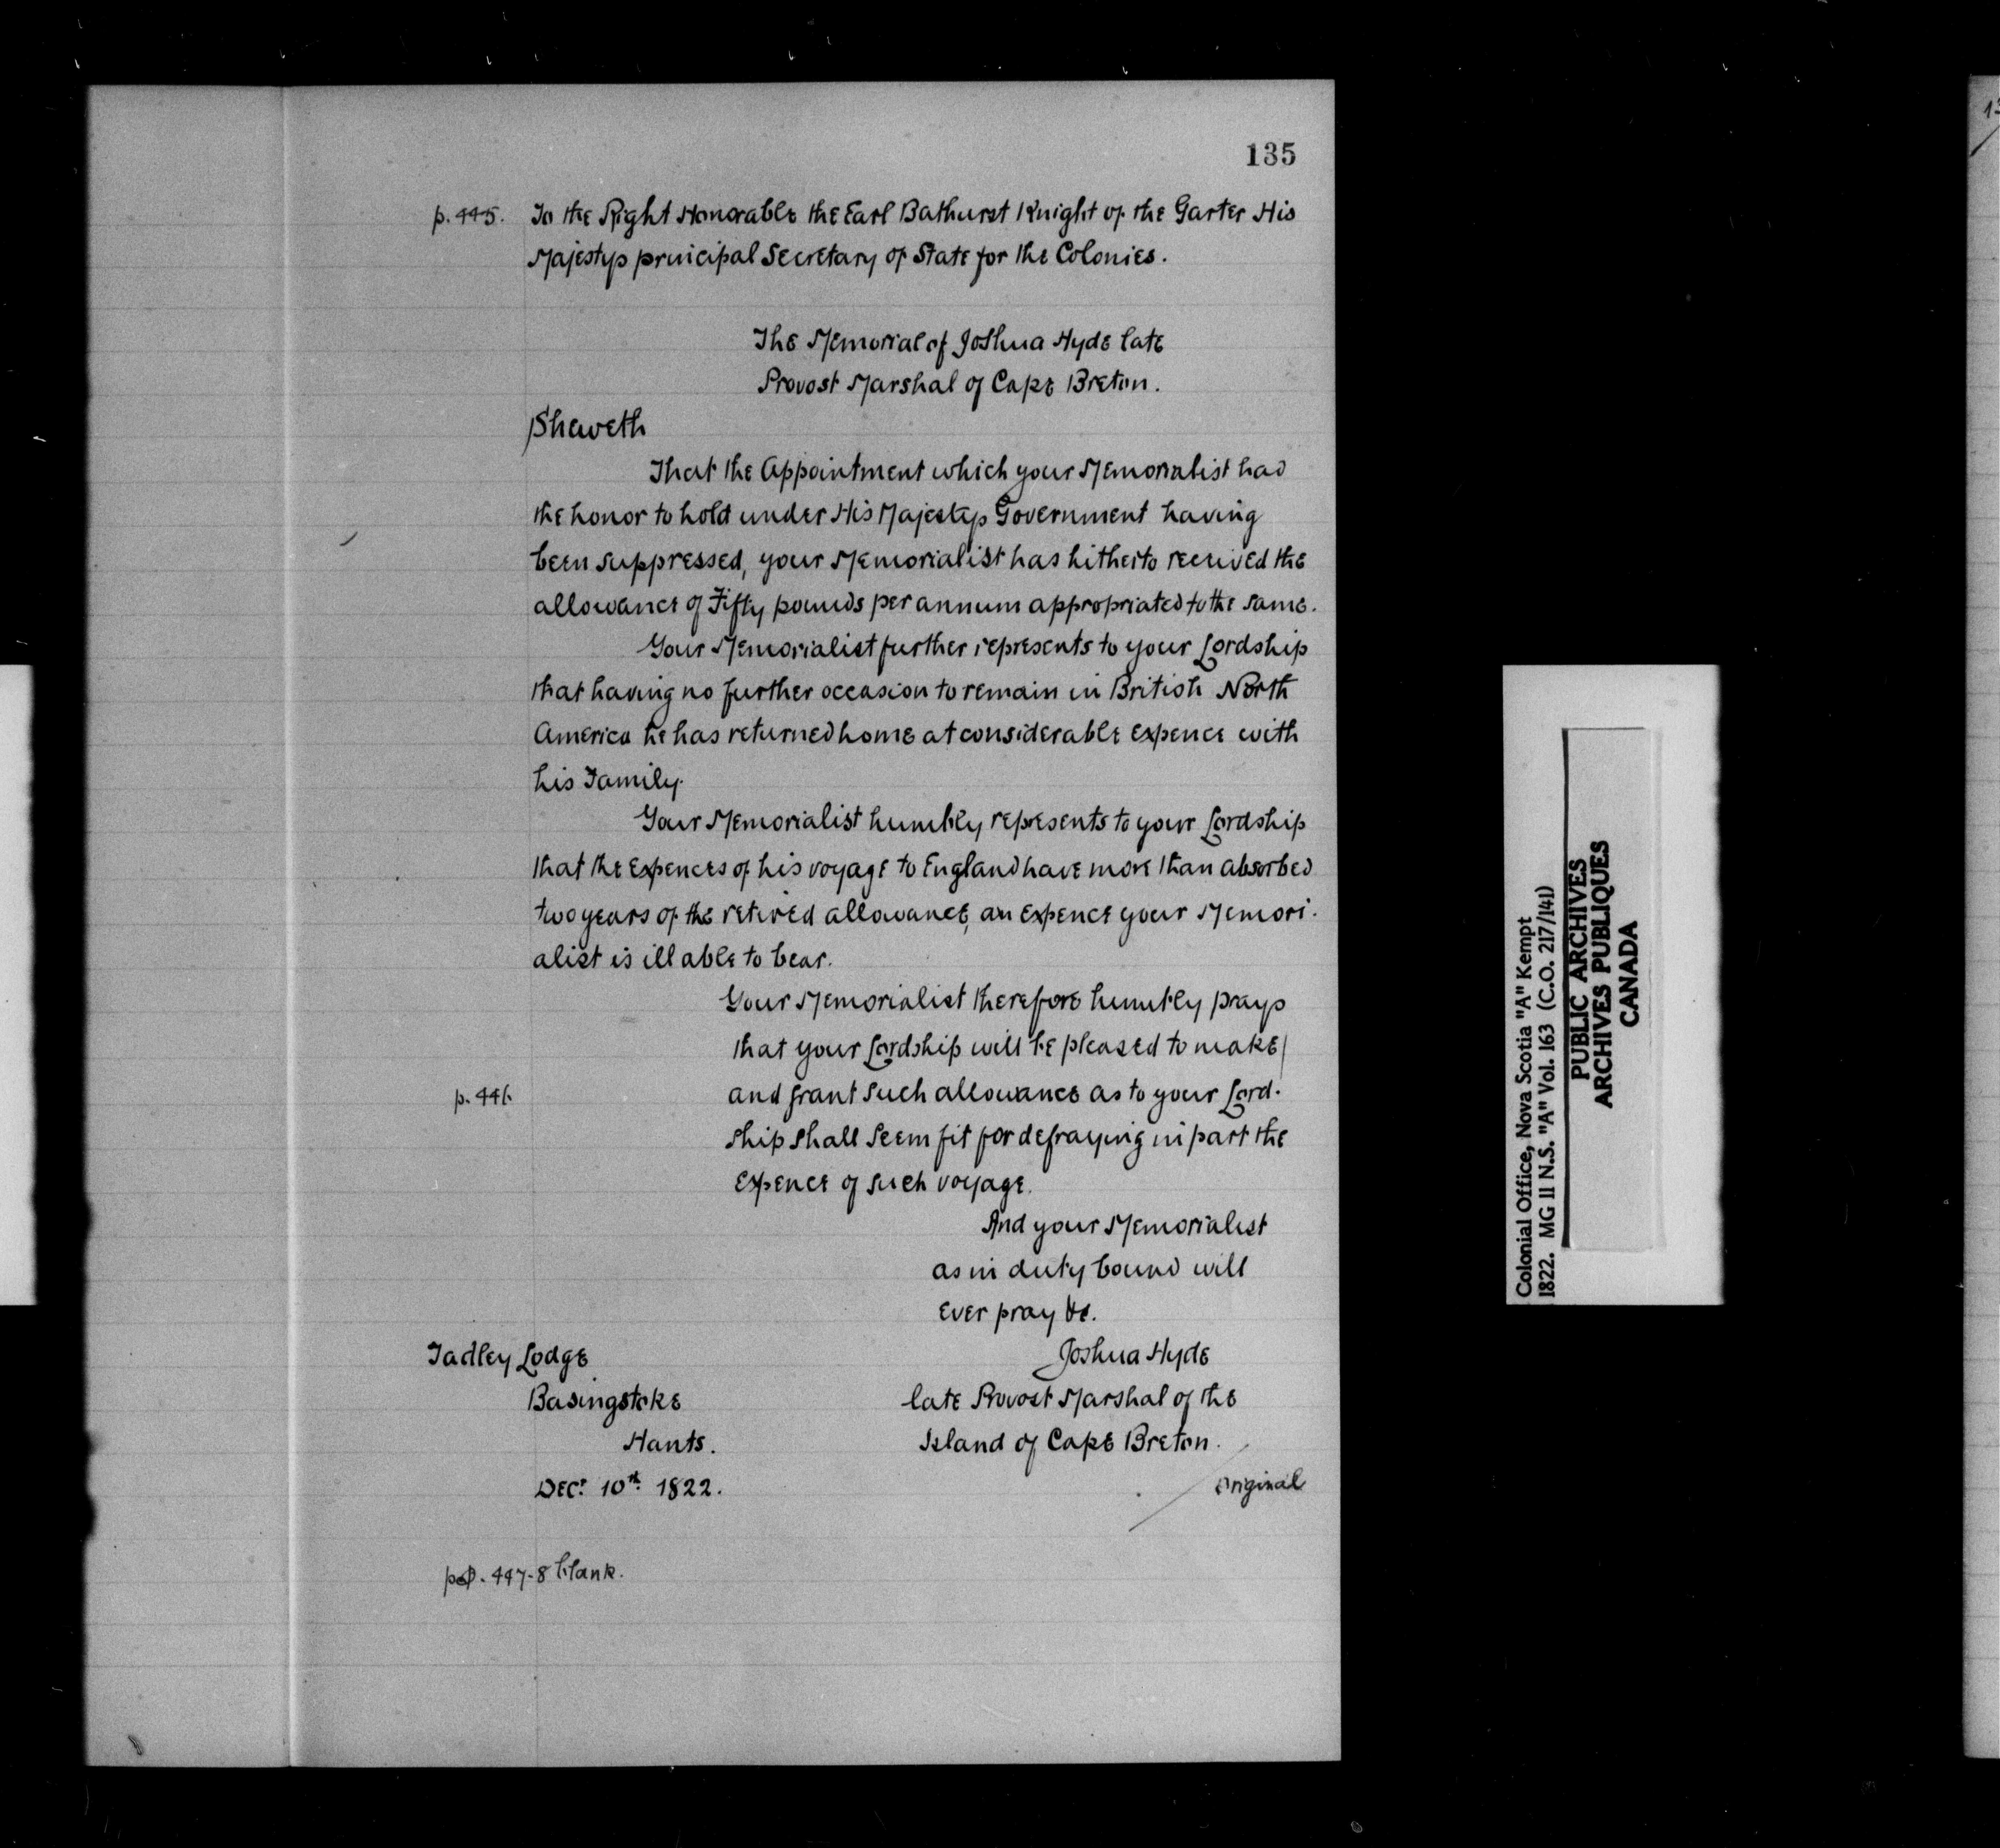 135
p. 445. To the Right Honorable the Earl Bathurst Knight of the Garter His
Majestys principal Secretary of State for the Colonies.
The Memorial of Joshua Hyde late
Provost Marshal of Cape Breton.
Sheweth
That the Appointment which your Memorialist had
the honor to hold under His Majestys Government having
been suppressed, your Memorialist has hitherto received the
allowance of Fifty pounds per annum appropriated to the same.
Your Memorialist further represents to your Lordship
that having no further occasion to remain in British North
America he has returned home at considerable expence with
his Family.
Your Memorialist humbly represents to your Lordship
that the expences of his voyage to England have more than absorbed
two years of the retired allowance, an expence your Memori-
alist is ill able to bear.
Your Memorialist therefore humbly prays
that your Lordship will be pleased to make/
p. 446. and grant such allowance as to your Lord-
ship shall seem fit for defraying in part the
expence of such voyage.
And your Memorialist
as in duty bound will
ever pray &c.
Tadley Lodge
Basingstoke
Hants.
Decr. 10th. 1822.
Joshua Hyde
late Provost Marshal of the
Island of Cape Breton.
original
pp. 447-8 blank.
Colonial Office, Nova Scotia "A" Kempt
1822. MG 11 N.S. "A" Vol. 163 (C.O. 217/141)
PUBLIC ARCHIVES
ARCHIVES PUBLIQUES
CANADA